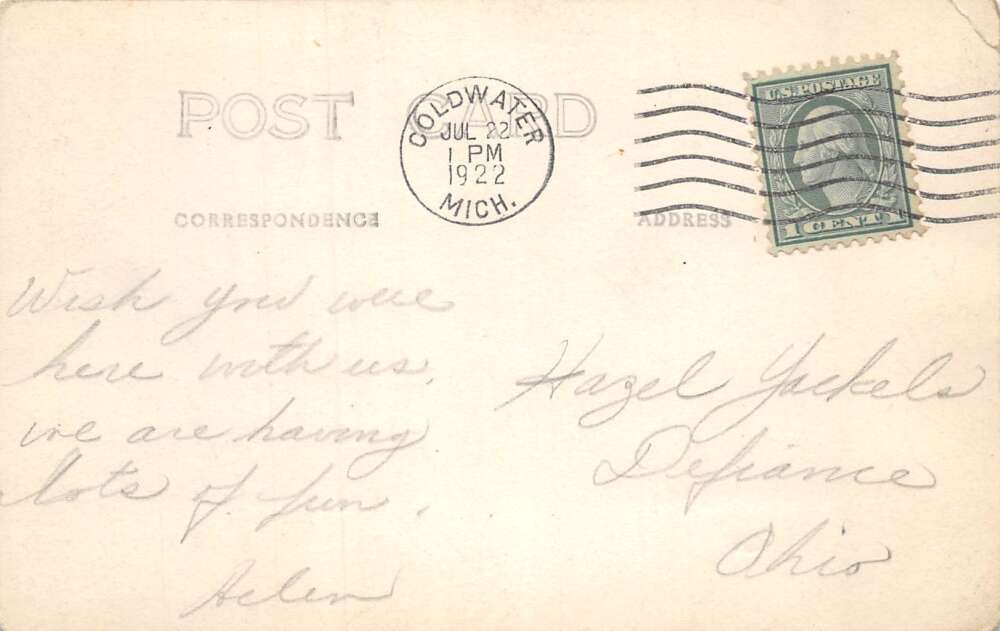 POST CARD
COLDWATER
JUL 22
1 PM
1922
MICH.
U.S. POSTAGE
1 CENT 1
CORRESPONDENCE
ADDRESS
Wish you were
here with us.
we are having
lots of fun.
Helen
Hazel Yackels
Defiance
Ohio